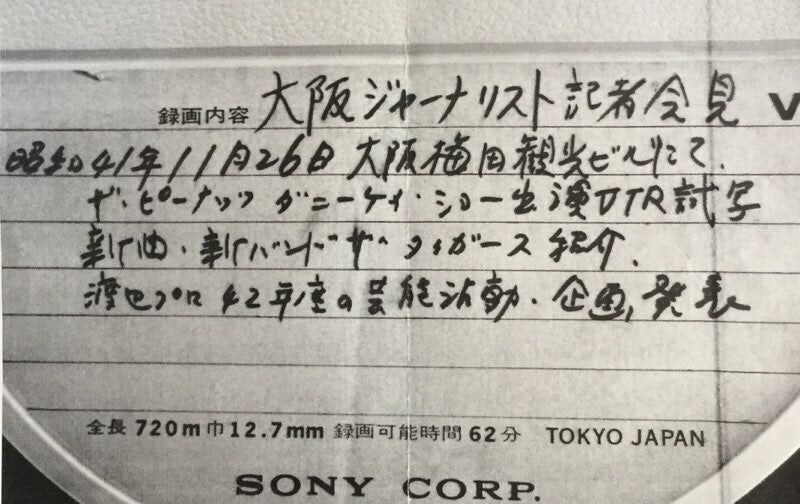 録画内容 大阪ジャーナリスト記者会見 V
昭和41年11月26日 大阪梅田観光ビルにて.
ザ・ピーナッツ ダニーケイ・ショー出演VTR試写
新曲・新バンド ザ・タイガース紹介.
渡辺プロ42年度の芸能活動・企画,発表
全長720m巾12.7mm 録画可能時間62分 TOKYO JAPAN
SONY CORP.